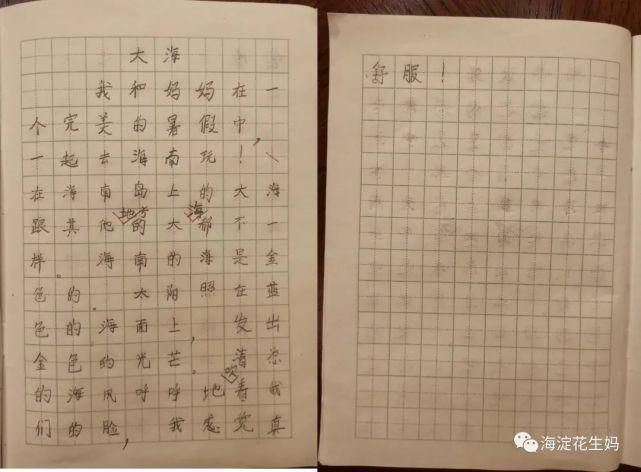 大海
我和妈妈在一
个完美的暑假中,
一起去海南玩!
在海南岛上的大海
跟其他地方的大海都不一
样。海南的海是金
色的 太阳照在蓝
色的海面上,发出
金色的光芒。清凉
的海风呼呼地吹着我
们的脸,我感觉真
舒服!
海淀花生妈